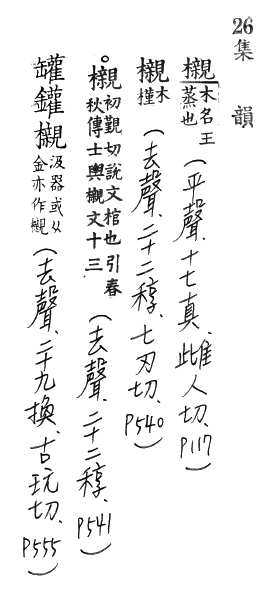 26 集韻
櫬 木名王蒸也 (平聲、十七真、雌人切、P117)
櫬 木槿 (去聲、二十二稕、七刃切、P540)
。櫬 初覲切說文棺也引春秋傳士輿櫬文十三 (去聲、二十二稕、P541)
罐鑵櫬 汲器或从金亦作櫬 (去聲、二十九換、古玩切、P555)